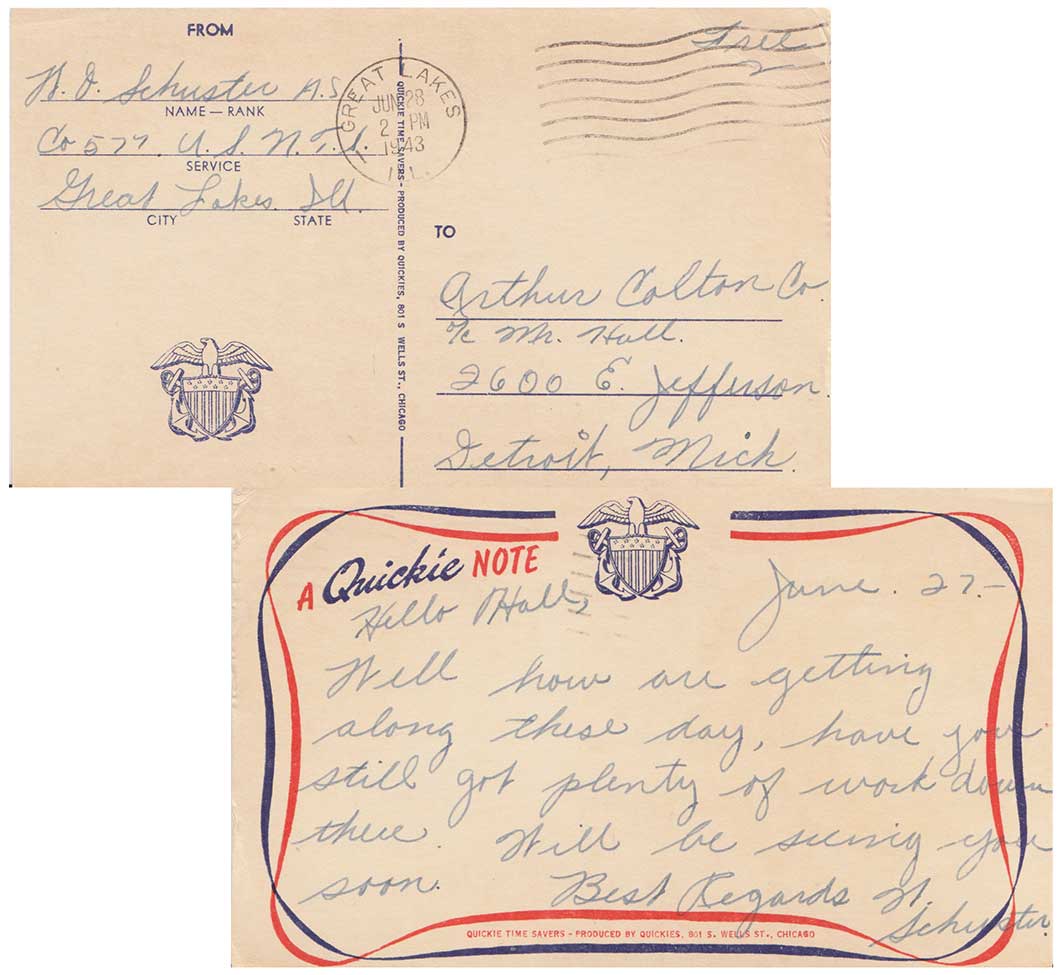 FROM
W. D. Schuster A.S.
NAME — RANK
Co 577. U. S. N. T. S.
SERVICE
Great Lakes. Ill.
CITY STATE
QUICKIE TIME SAVERS - PRODUCED BY QUICKIES, 801 S WELLS ST., CHICAGO
GREAT LAKES
JUN 28
2 PM
1943
ILL.
Free
TO
Arthur Colton Co.
c/o Mr. Hall.
2600 E. Jefferson
Detroit, Mich.
A Quickie NOTE
Hello Hall,
June. 27.-
Well how are getting
along these day, have your
still got plenty of work down
there. Will be seeing you
soon. Best Regards W.
Schuster.
QUICKIE TIME SAVERS - PRODUCED BY QUICKIES, 801 S. WELLS ST., CHICAGO